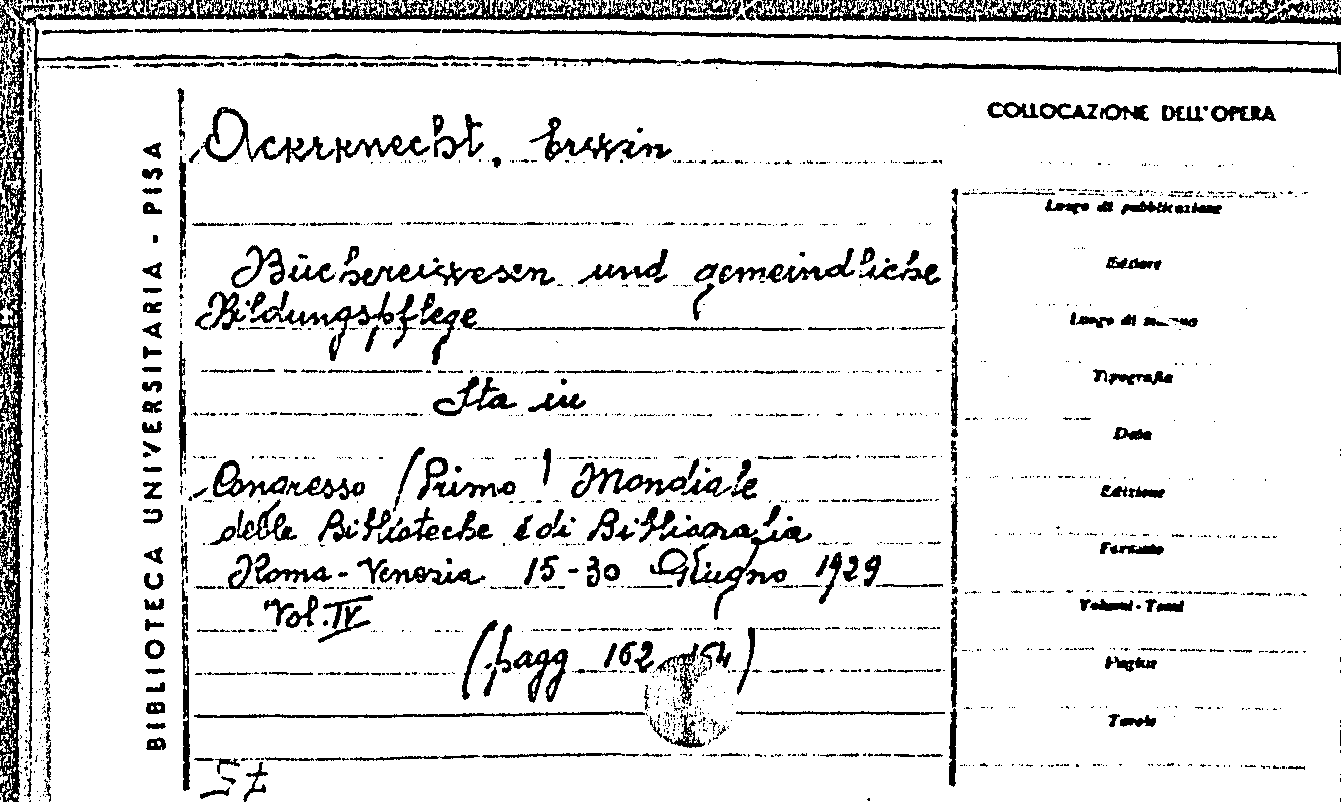 COLLOCAZIONE DELL'OPERA
BIBLIOTECA UNIVERSITARIA - PISA
Ackerknecht, Erwin
Büchereiwesen und gemeindliche
Bildungspflege
Sta in
Congresso (Primo) Mondiale
delle Biblioteche e di Bibliografia
Roma - Venezia 15-30 Giugno 1929
Vol. IV
(pagg 162-164)
Luogo di pubblicazione
Editore
Luogo di stampa
Tipografia
Data
Edizione
Formato
Volumi - Tomi
Pagine
Tavole